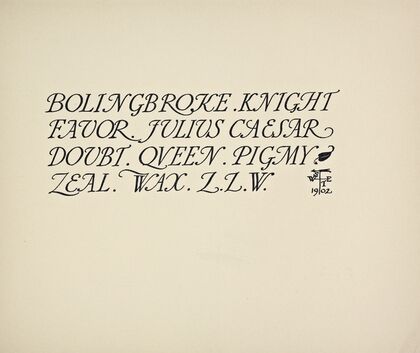 BOLINGBROKE . KNIGHT
FAVOR . JULIUS CAESAR
DOUBT . QVEEN . PIGMY
ZEAL . WAX . Z.Z.W.
1902